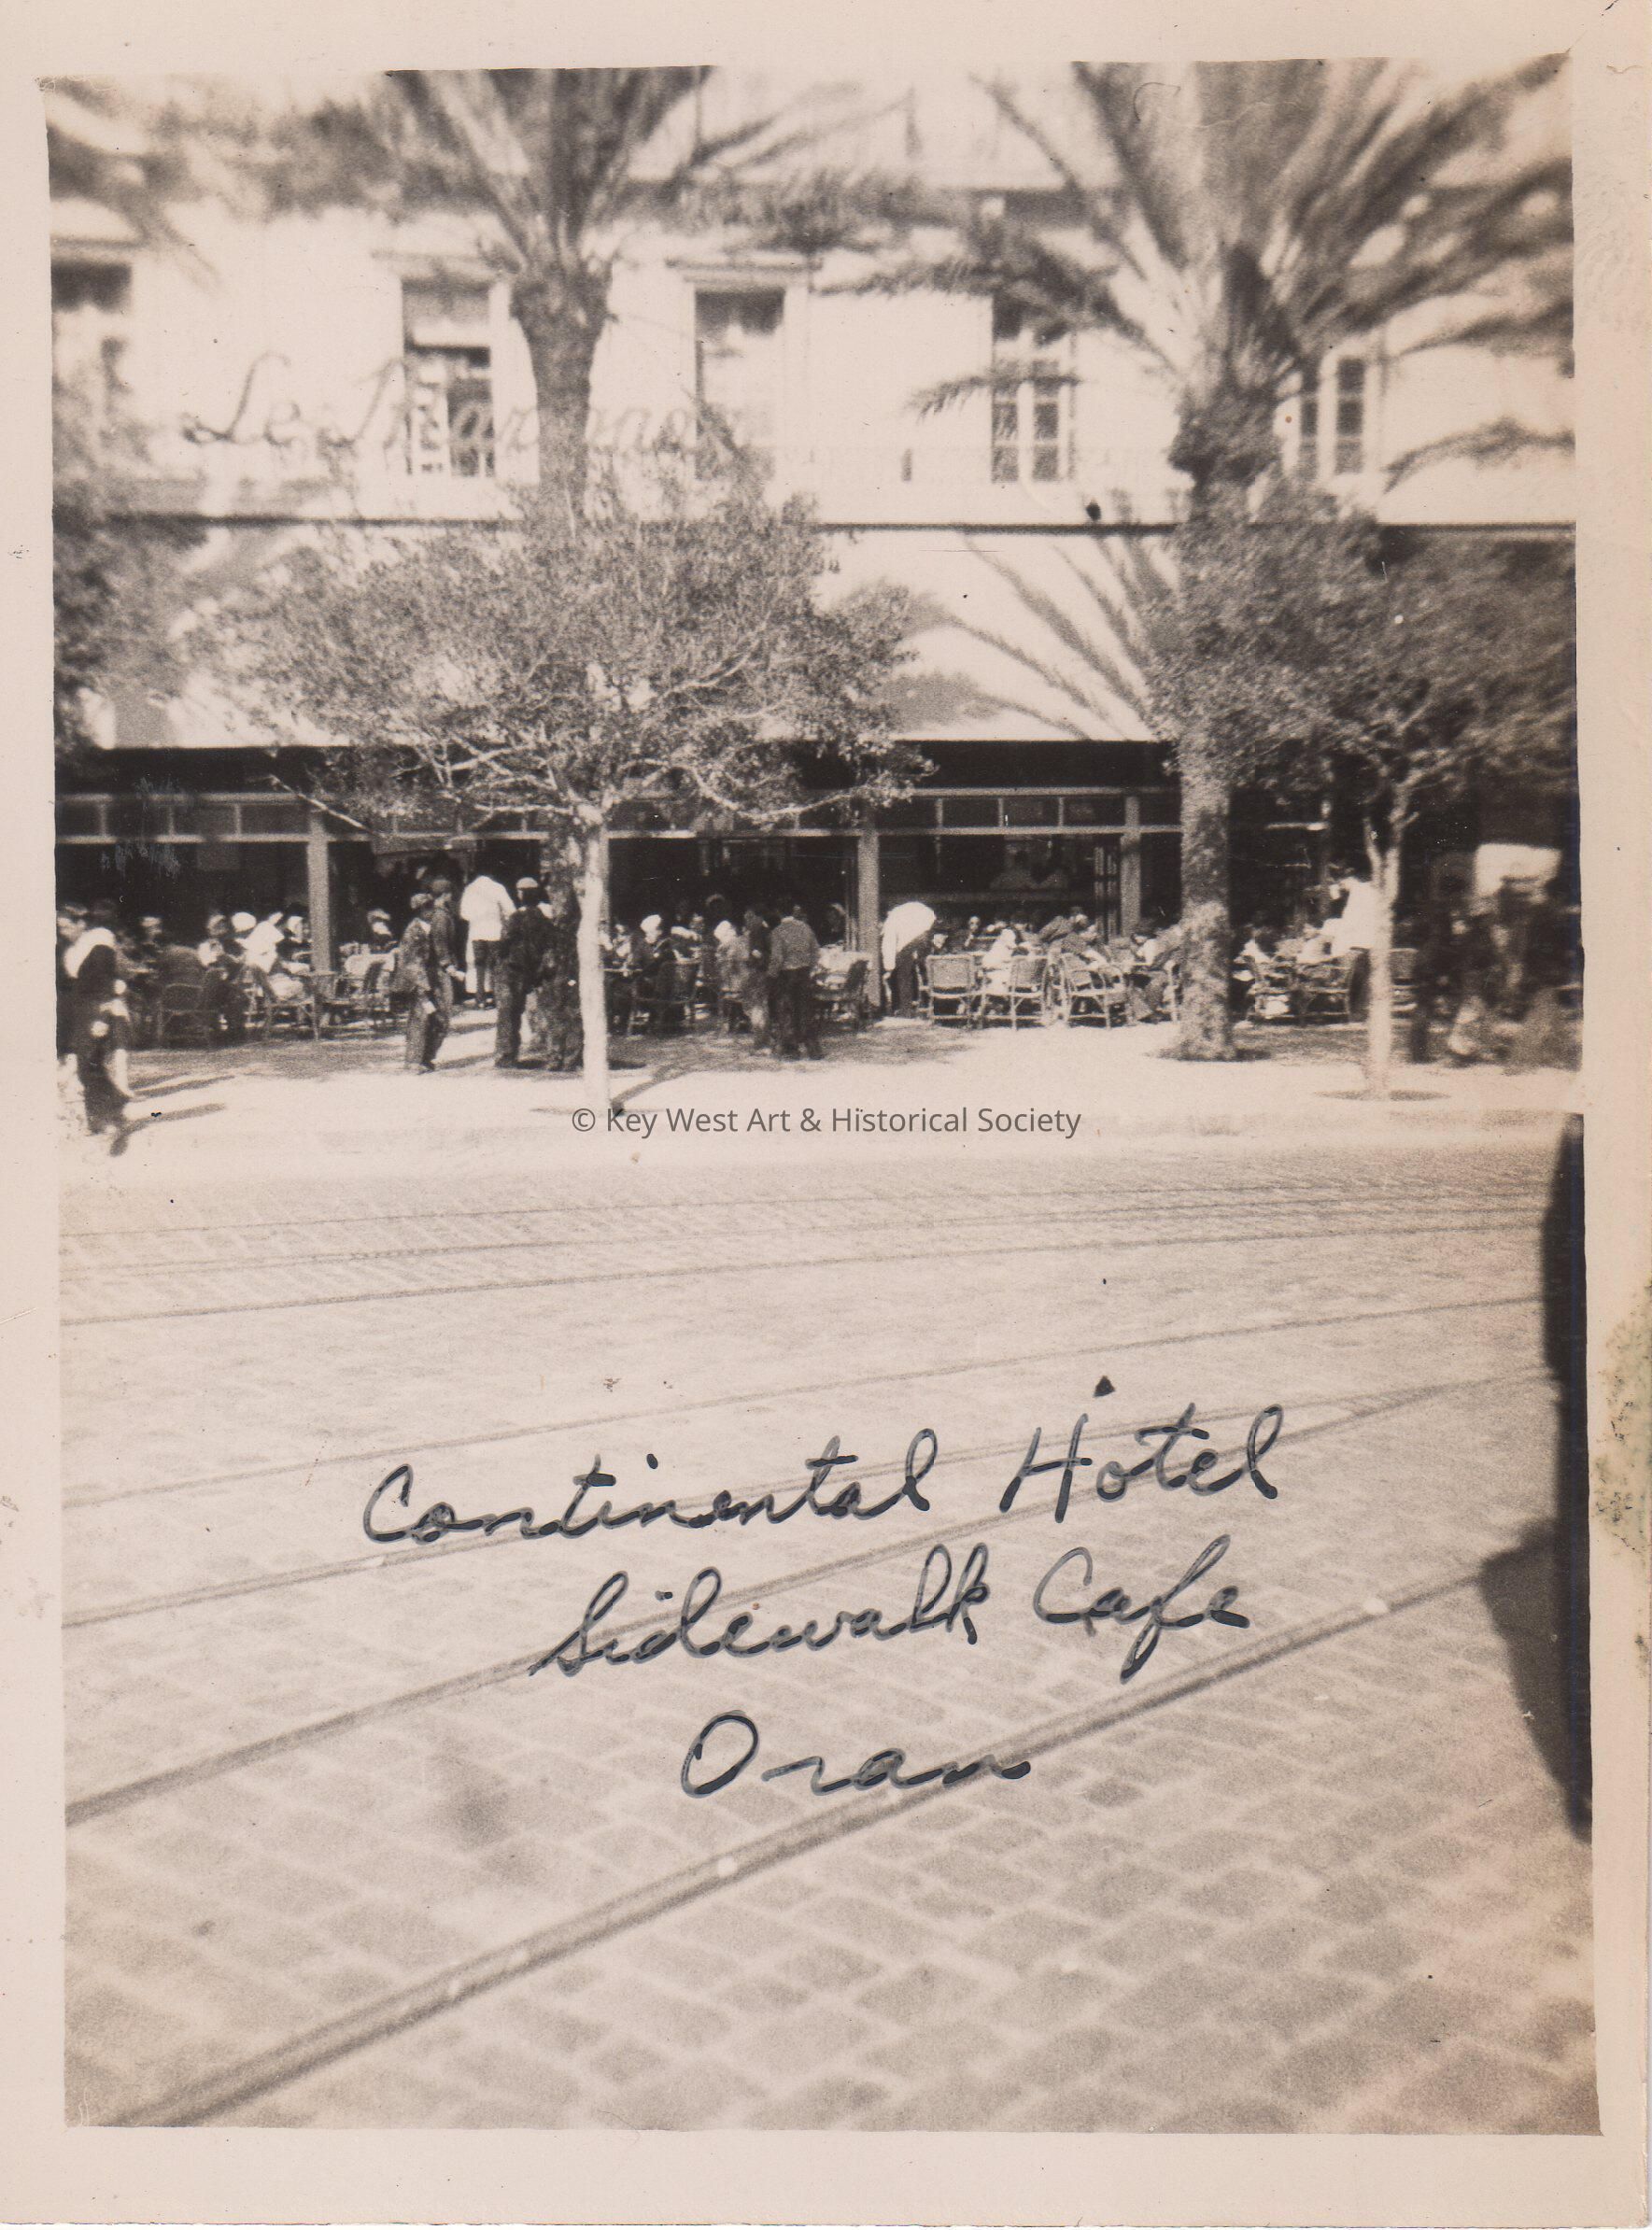 Le
© Key West Art & Historical Society
Continental Hotel
Sidewalk Cafe
Oran